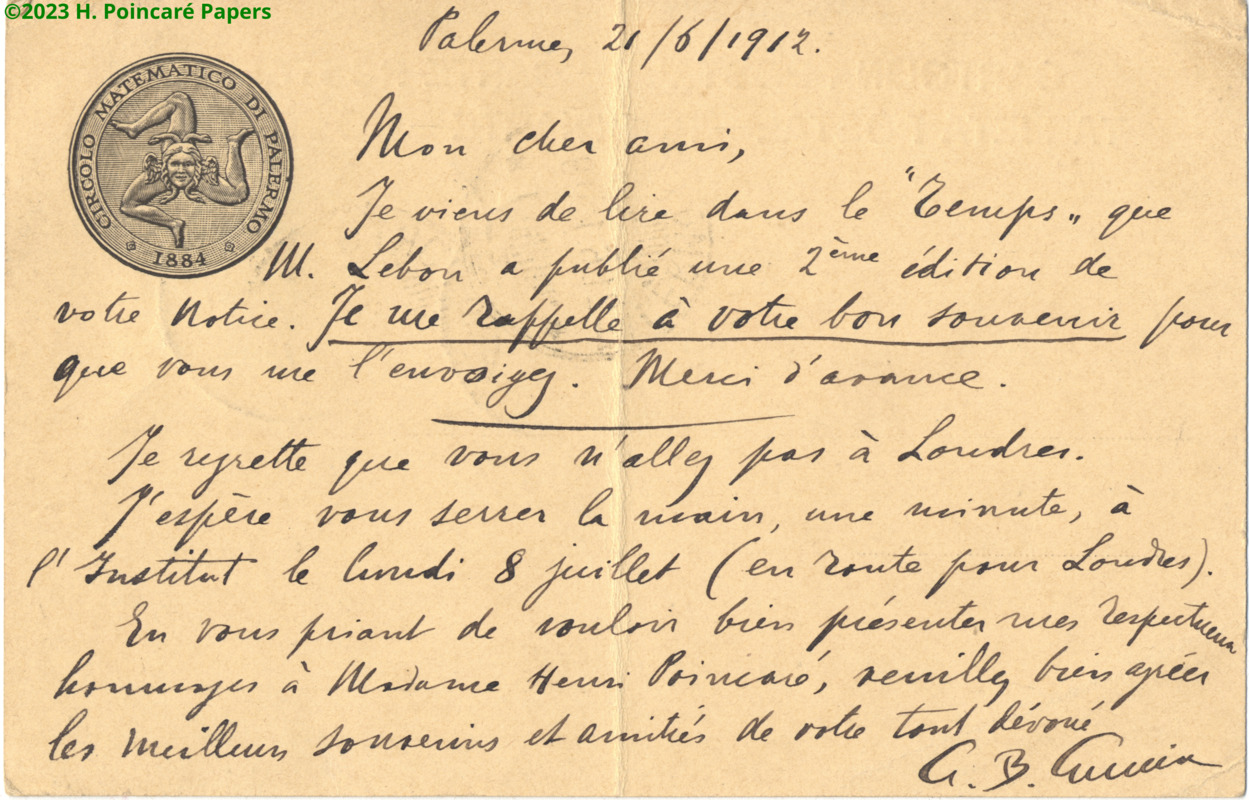 ©2023 H. Poincaré Papers
Palerme, 21/6/1912.
CIRCOLO MATEMATICO DI PALERMO
1884
Mon cher ami,
Je viens de lire dans le "Temps„ que
M. Lebon a publié une 2ème édition de
votre Notice. Je me rappelle à votre bon souvenir pour
que vous me l'envoiyez. Merci d'avance.
Je regrette que vous n'allez pas à Londres.
J'espère vous serrer la main, une minute, à
l'Institut le lundi 8 juillet (en route pour Londres).
En vous priant de vouloir bien présenter mes respectueux
hommages à Madame Henri Poincaré, veuillez bien agréer
les meilleurs souvenirs et amitiés de votre tout dévoué
G. B. Guccia